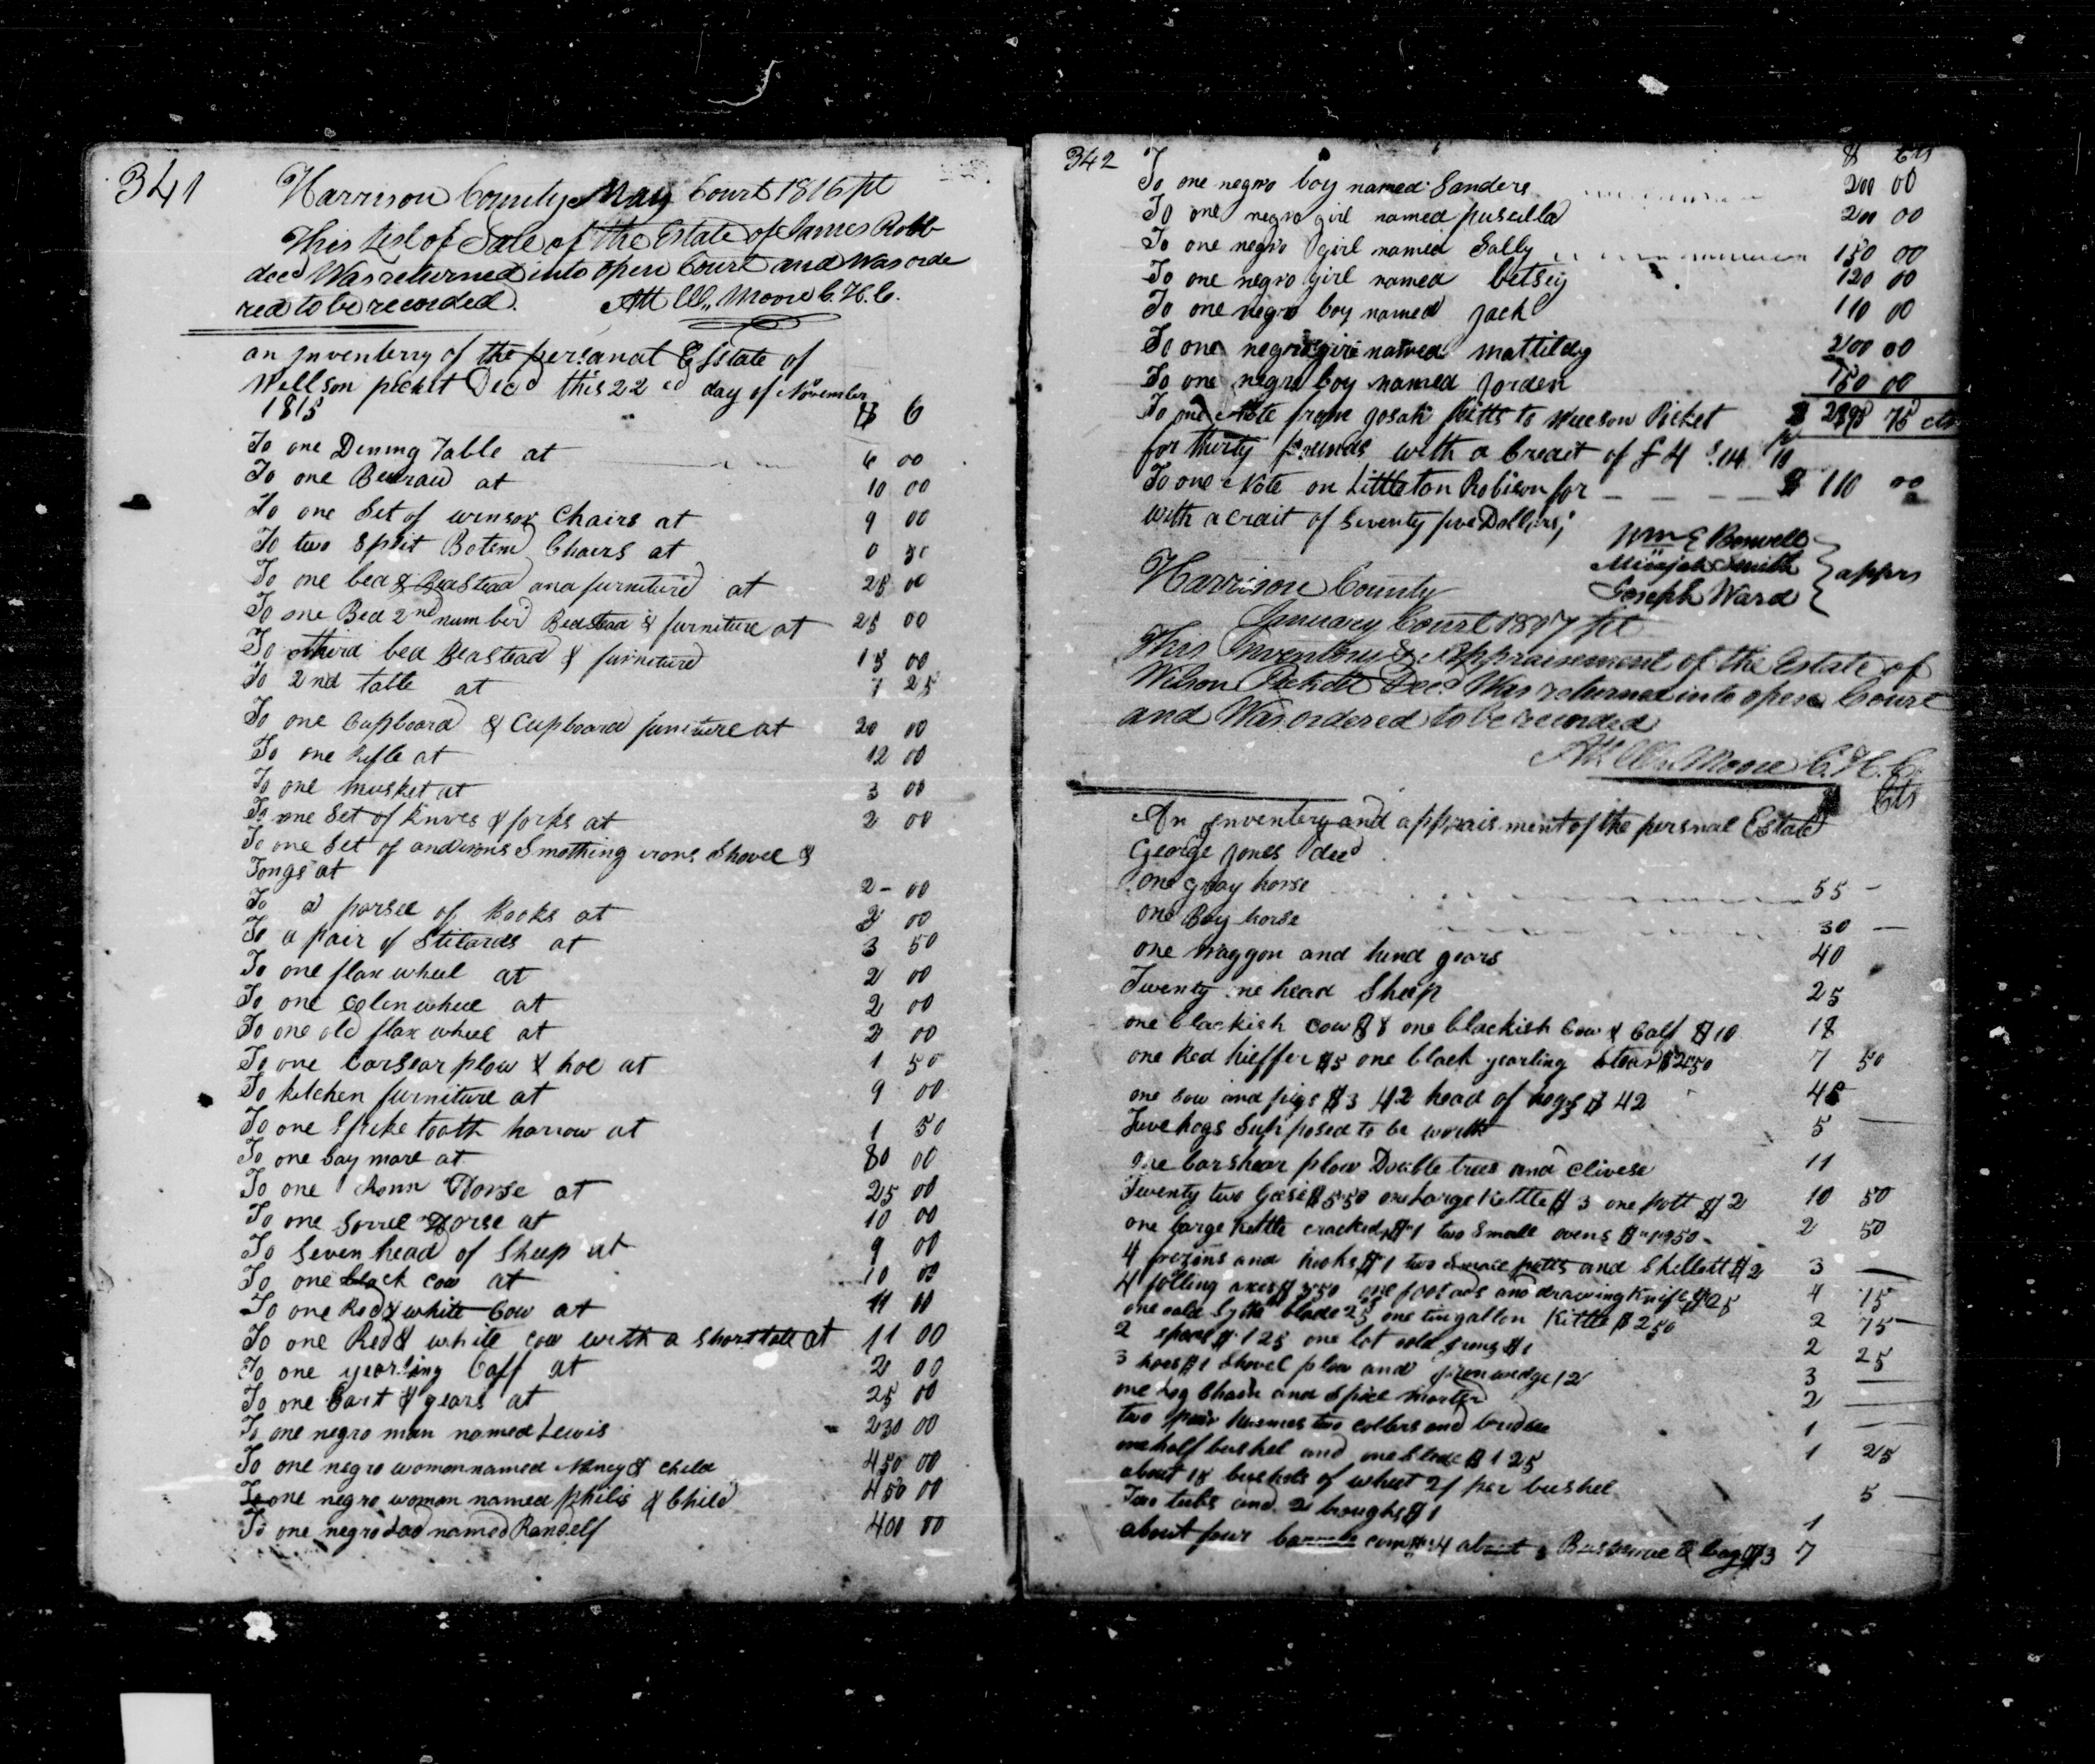 341
Harrison County May Court 1816 fit
This List of Sale of the Estate of James Robb
decd Was returned into open Court and Was orde
red to be recorded. Att Wm Moore C.H.C.
an Inventerry of the persanal Esstate of
Willson picket Decd this 22ed day of November
1815 $ C
To one Dining Table at 6 00
To one Beuraw at 10 00
To one Set of winsor Chairs at 9 00
To two Split Botem Chairs at 0 50
To one bed & Bedstead and furniture at 25 00
To one Bed 2nd number Bedstead & furniture at 25 00
To third bed Beadstead & furniture 15 00
To 2nd table at 1 25
To one Cupboard & Cupboard furniture at 20 00
To one Rifle at 12 00
To one musket at 3 00
To one Set of Knives & forks at 2 00
To one Set of andirons Smothing irons Shovel &
Tongs at 2 - 00
To a parsel of Books at 2 00
To a pair of Stilards at 3 50
To one flax wheel at 2 00
To one Coten wheel at 2 00
To one old flax wheel at 2 00
To one barshar plow & hoe at 1 50
To kitchen furniture at 9 00
To one Spike tooth harrow at 1 50
To one bay mare at 80 00
To one Ronn Horse at 25 00
To one Sorrel Horse at 10 00
To Seven head of Sheep at 9 00
To one black cow at 10 00
To one Red & white Cow at 11 00
To one Red & white cow with a short tale at 11 00
To one yearling Caff at 2 00
To one Cart & gears at 25 00
To one negro man named Lewis 230 00
To one negro woman named Nancy & child 450 00
To one negro woman named philis & Child 450 00
To one negro Lad named Randelf 400 00
342 $ Cts
To one negro boy named Sanders 200 00
To one negro girl named puscilla 200 00
To one negro girl named Sally 150 00
To one negro girl named betsey 120 00
To one negro boy named Jack 110 00
To one negro girl named mattildy 200 00
To one negro boy named Jorden 150 00
To one Note from Josah pitts to Willson Picket $ 2895 75 cts
for thirty pounds with a Credit of £ 4 S 14 10
To one Note on Littleton Robison for $ 110 00
with a crait of Seventy five Dollars;
Wm E Boswell
Micajah Smith } apprs
Joseph Ward
Harrison County
January Court 1817 fit
This Inventory & Appraisement of the Estate of
Wilson Pickett Decd Was returned into open Court
and Was ordered to be recorded
Att Wm Moore C.H.C.
$ Cts
An Inventery and apprais ment of the persnal Estate
George Jones decd
one gray horse 55 -
one Bay horse 30 -
one Waggon and hind gears 40
Twenty ne head Sheep 25
one blackish Cow $8 one blackish Cow & Calf $10 18
one Red hieffer $5 one black yearling Stear $2 50 7 50
one Sow and pigs $3 42 head of hogs $42 45
five hogs Supposed to be worth 5
one barshear plow Double trees and Clivese 11
Twenty two Geese $5 50 one Large Kettle $3 one pott $2 10 50
one large Kettle cracked $1 two Small ovens $1 50 2 50
4 and hooks $1 two Small potts and Skellett $2 3
4 folling axes $3 50 one foot ads and drawing Knife $1 25 4 75
one old Sythe blade 25 one tin gallon Kittle $2 50 2 75
2 $1 25 one lot old Irons $1 2 25
3 hoes $1 Shovel plow and Iron wedge 12 3
one Log Chain and Spice morter 2
two pair two collers and bridle 1
one half bushel and one $1 25 1 25
about 18 bushels of wheat 2/ per bushel 5
Two tubs and 2 $1 1
about four $4 about & bag $3 7